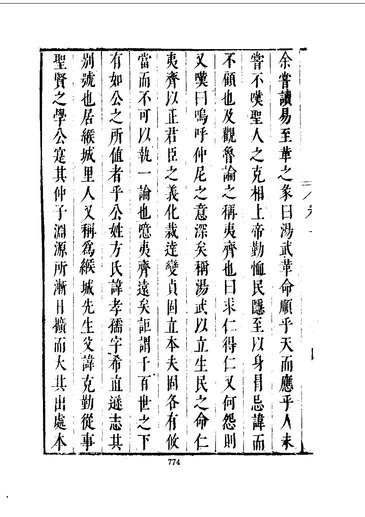 余嘗讀易至革之彖曰湯武革命順乎天而應乎人未
嘗不嘆聖人之克相上帝勤恤民隱至以身冒忌諱而
不顧也及觀魯論之稱夷齊也曰求仁得仁又何怨則
又嘆曰嗚呼仲尼之意深矣稱湯武以立生民之命仁
夷齊以正君臣之義化裁達變貞固立本夫固各有攸
當而不可以執一論也噫夷齊遠矣詎謂千百世之下
有如公之所值者乎公姓方氏諱孝孺字希直遜志其
別號也居緱城里人又稱爲緱城先生父諱克勤從事
聖賢之學公寔其仲子淵源所漸日擴而大其出處本
774